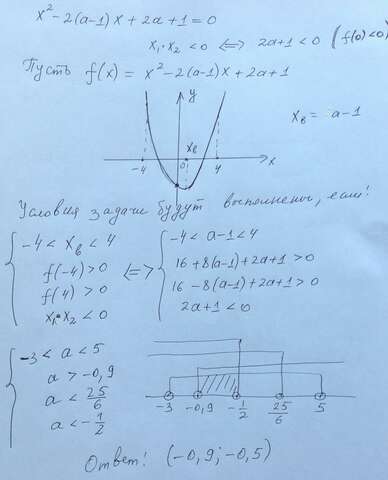 x² - 2(a-1)x + 2a + 1 = 0
x₁·x₂ < 0 ⟺ 2a+1 < 0 (f(0)<0)
Пусть f(x) = x² - 2(a-1)x + 2a+1
y
x_в = a-1
x_в
-4 0 4 x
Условия задачи будут выполнены, если!
-4 < x_в < 4 ⟺ -4 < a-1 < 4
f(-4) > 0 16 + 8(a-1) + 2a+1 > 0
f(4) > 0 16 - 8(a-1) + 2a+1 > 0
x₁·x₂ < 0 2a+1 < 0
-3 < a < 5
a > -0,9
a < 25/6
a < -1/2
-3 -0,9 -1/2 25/6 5
Ответ! (-0,9; -0,5)